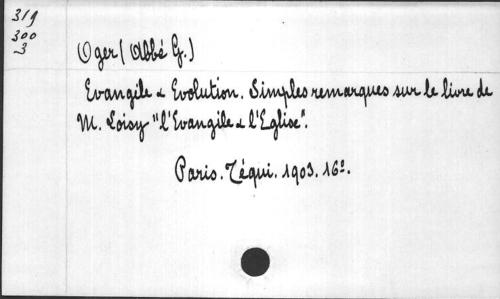 319
300
3
Oger (Abbé G.)
Evangile & Evolution. Simples remarques sur le livre de
M. Loisy "l'Evangile & l'Eglise".
Paris. Téqui. 1903. 16º.